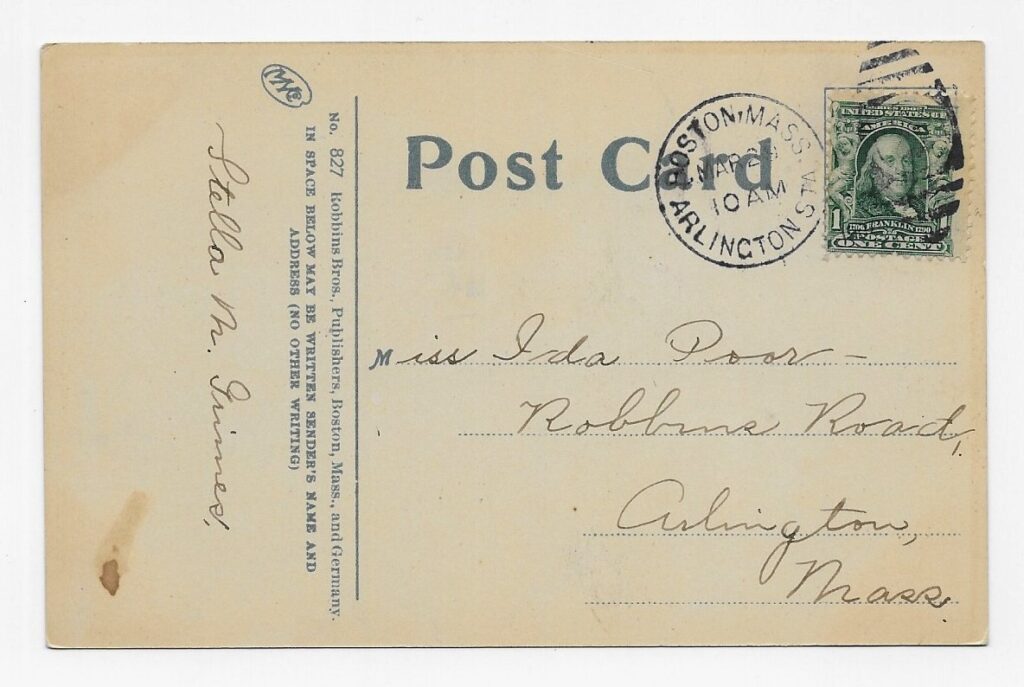 Post Card
BOSTON, MASS.
MAR 2
10 AM
ARLINGTON STA.
SERIES 1902
UNITED STATES OF
AMERICA
1 1
1706 FRANKLIN 1790
POSTAGE
ONE CENT
No. 827 Robbins Bros., Publishers, Boston, Mass., and Germany.
IN SPACE BELOW MAY BE WRITTEN SENDER'S NAME AND
ADDRESS (NO OTHER WRITING)
Stella M. Grimes,
Miss Ida Poor –
Robbins Road,
Arlington,
Mass.